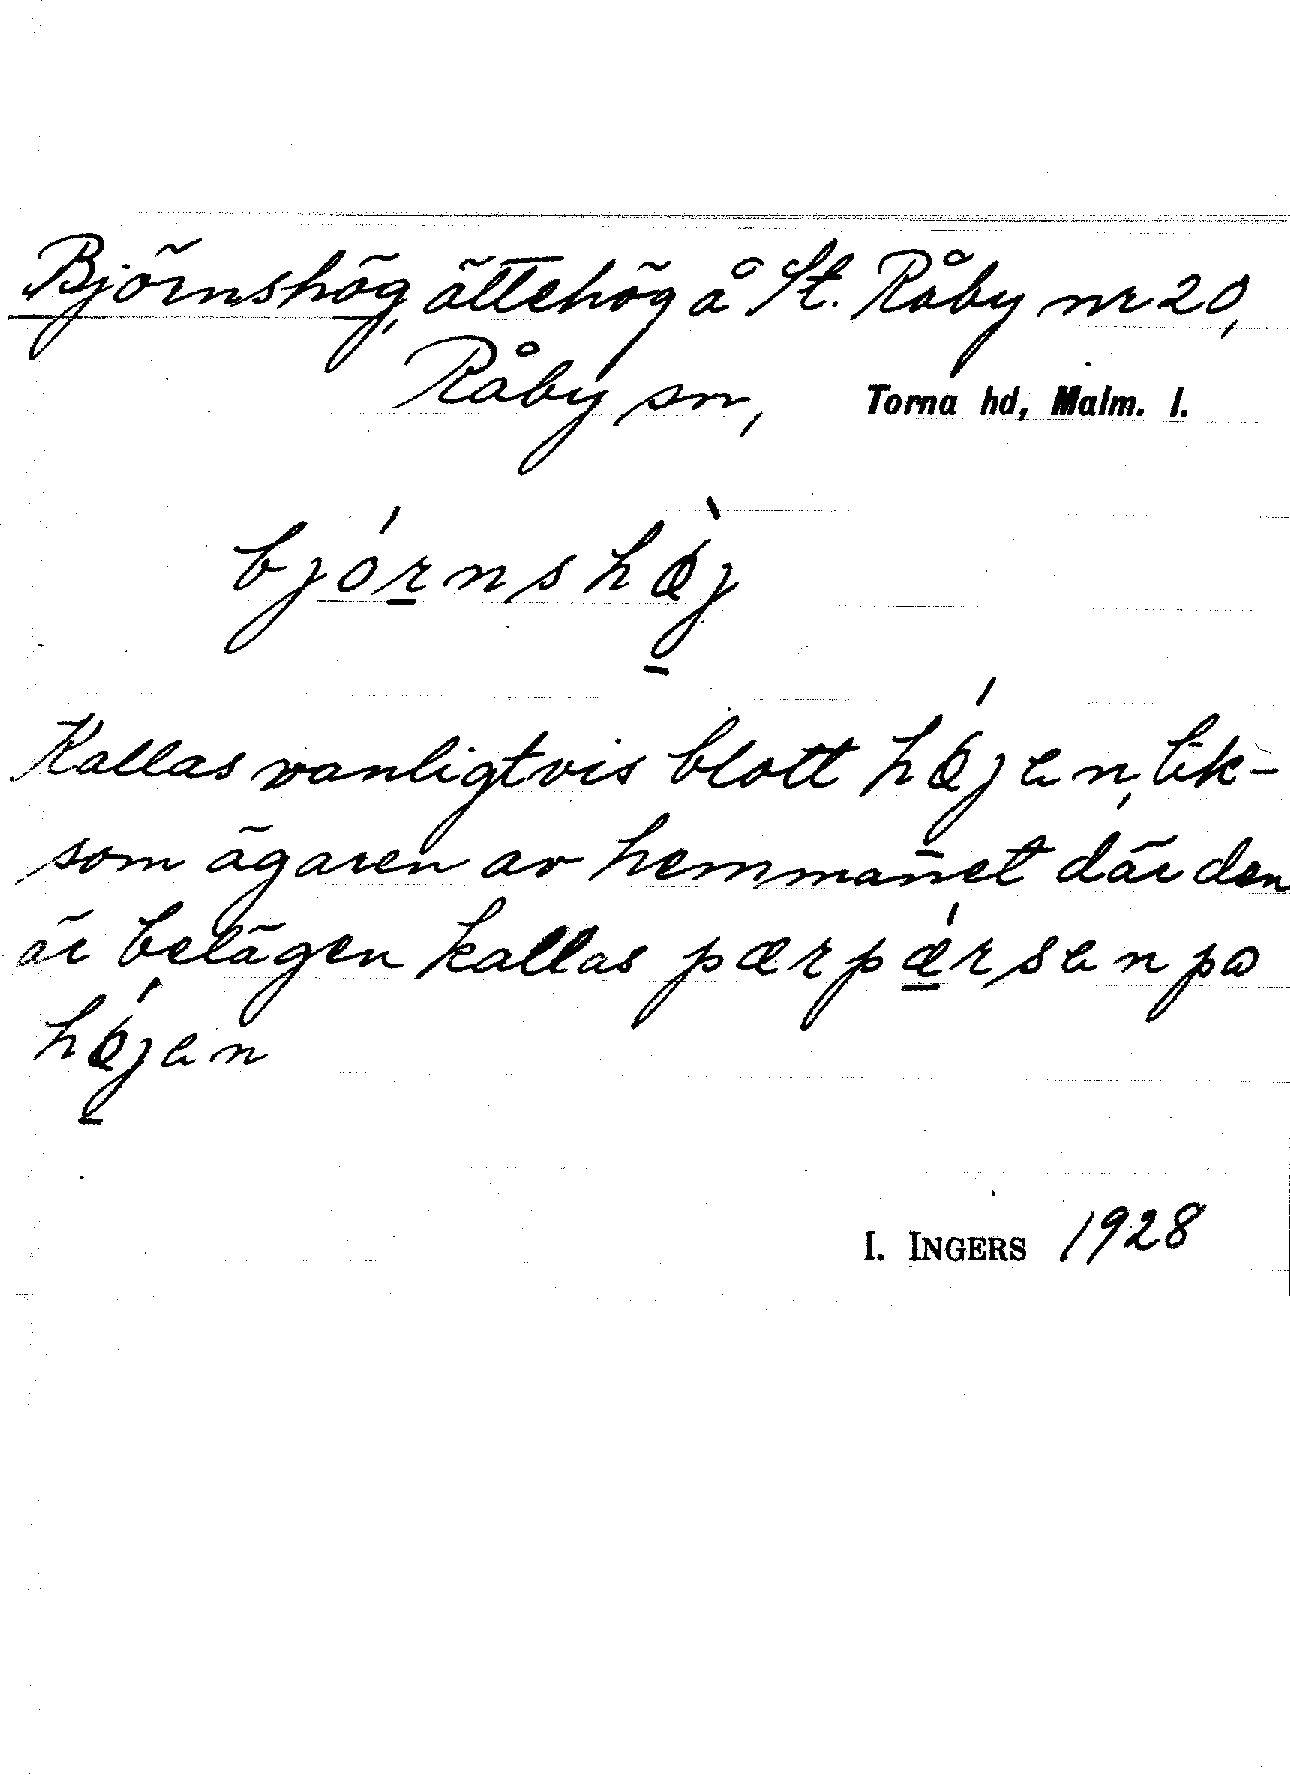 Björnshög, ättehög å St. Råby nr 20,
Råby sn, Torna hd, Malm. l.
bjórnshǿ̀j
Kallas vanligtvis blott hǿjen, lik-
som ägaren av hemmanet där den
är belägen kallas pærpǽrsen på
hǿjen
I. INGERS 1928